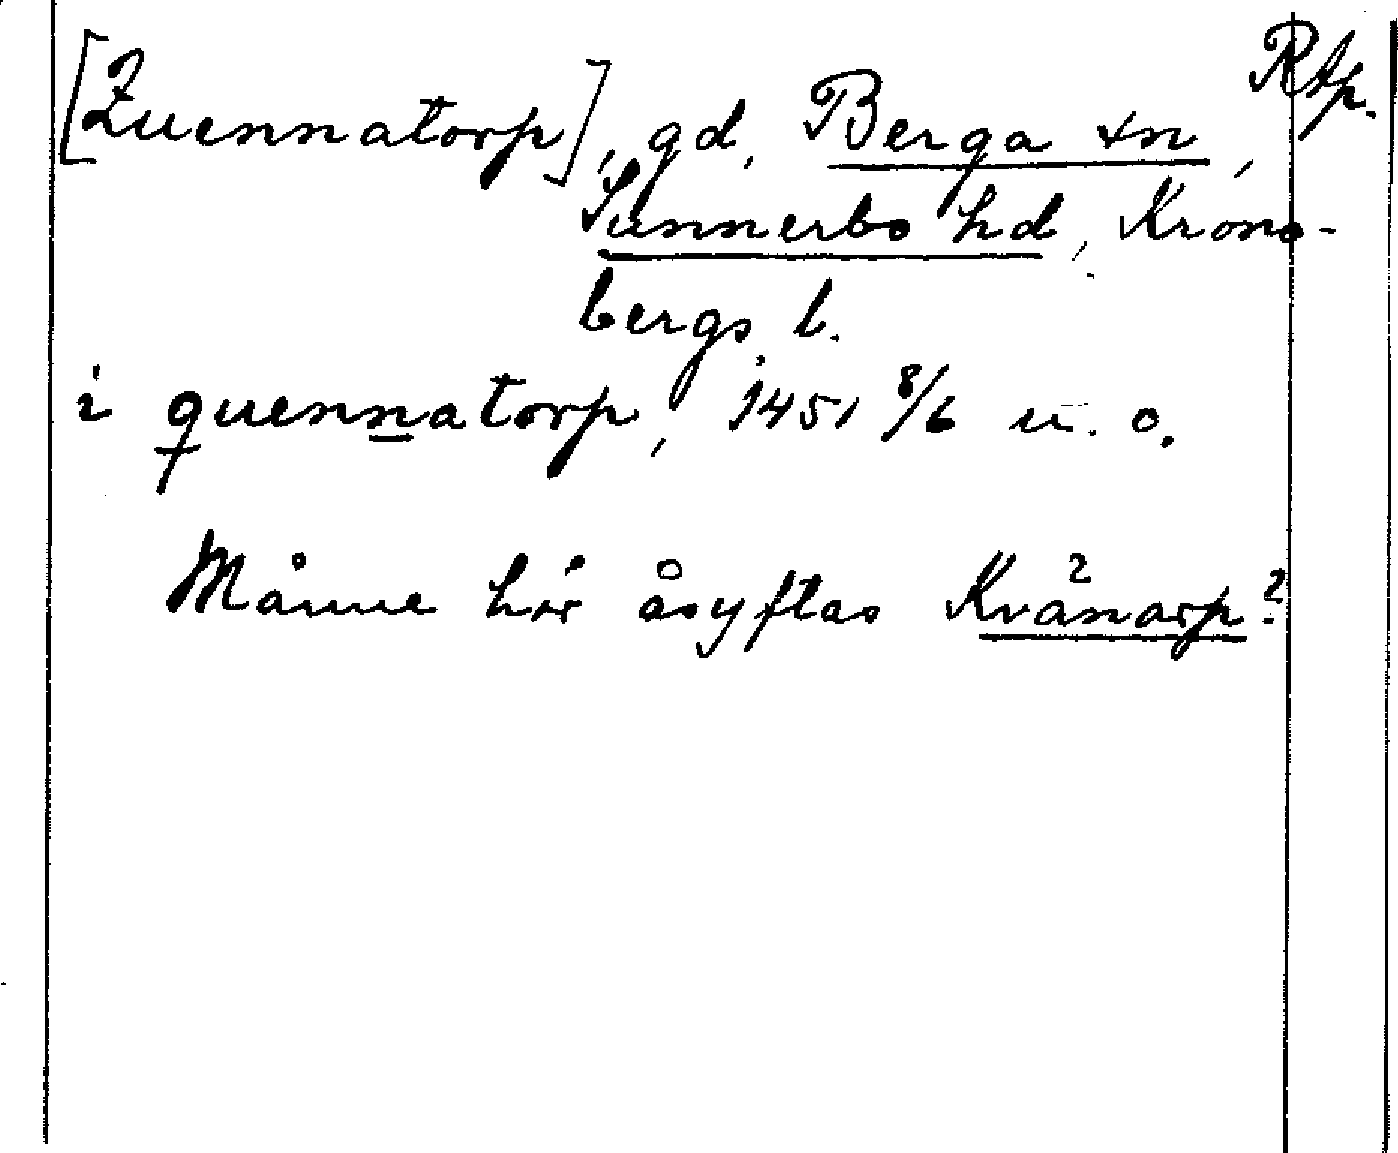 Rtp.
[Quennatorp], gd, Berga sn,
Sunnerbo hd, Krono-
bergs l.
i quennatorp, 1451 8/6 u. o.
Månne här åsyftas Kvänarp?